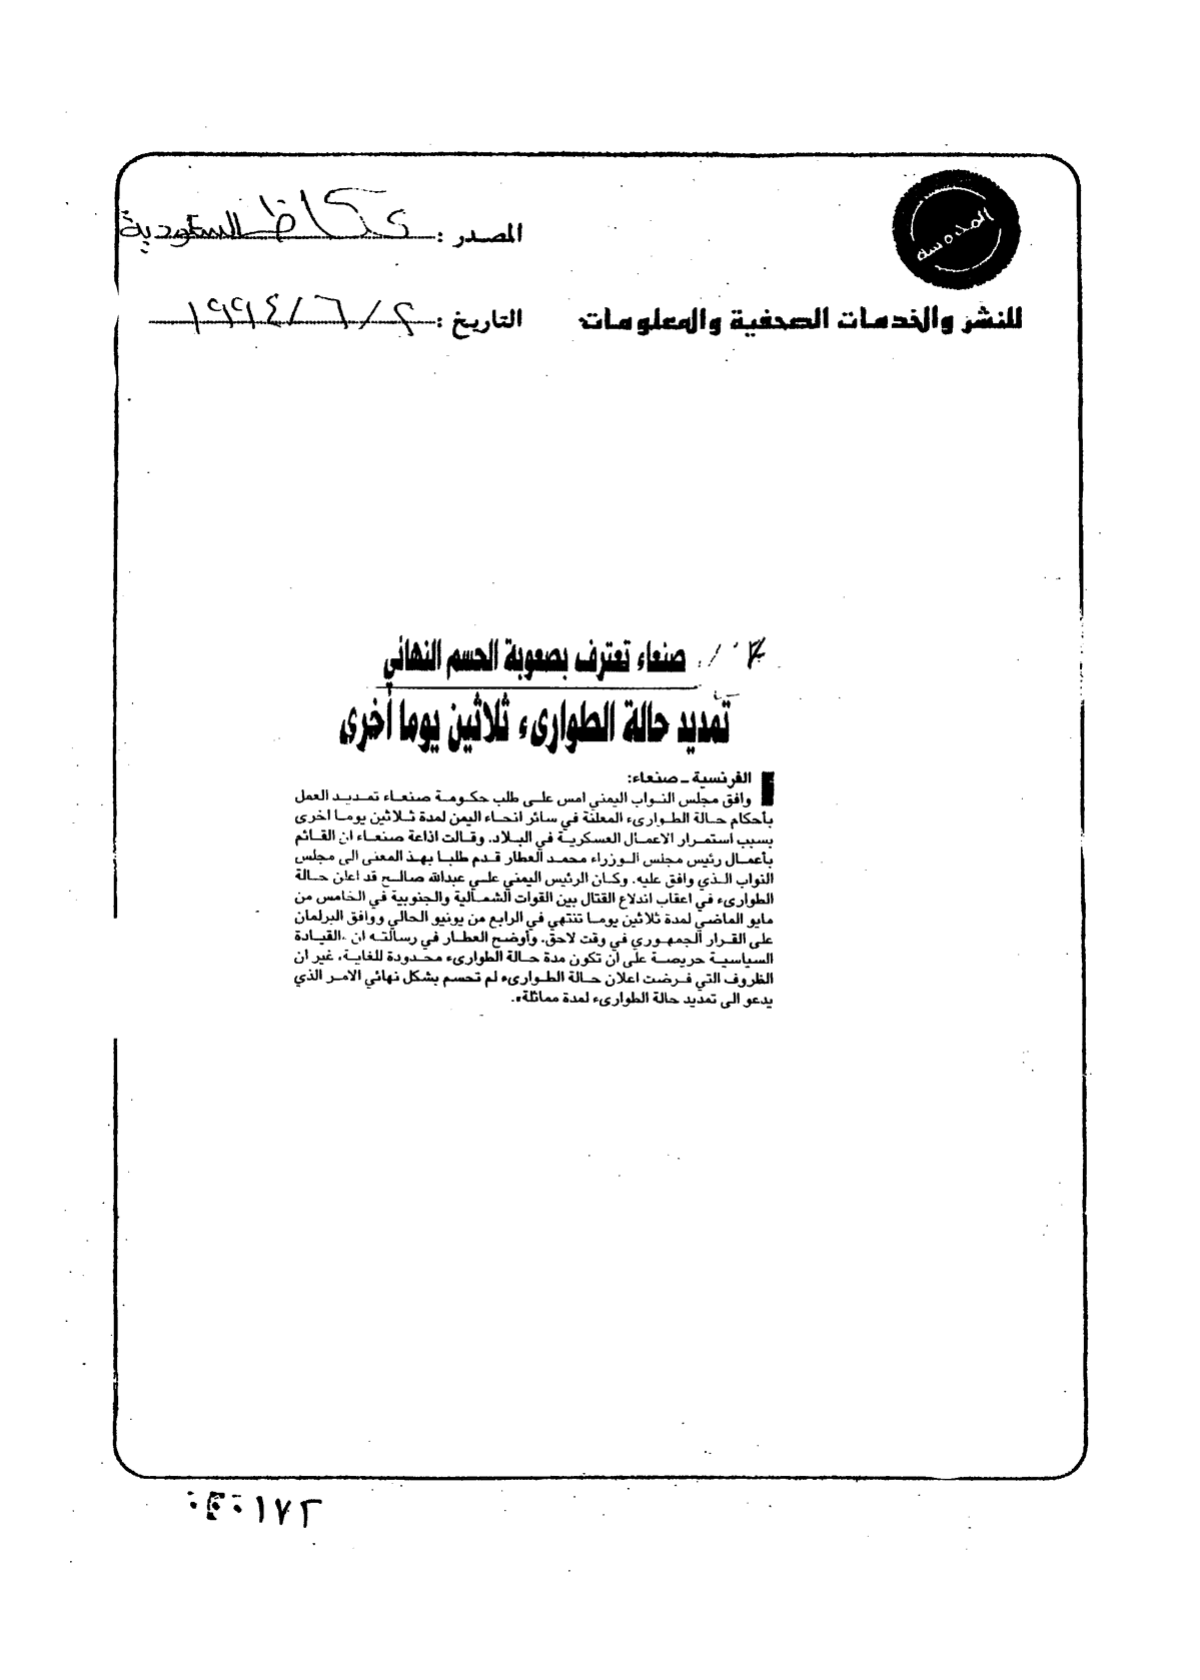 المصدر : عكاظ السعودية
للنشر والخدمات الصحفية والمعلومات
التاريخ : ٢ / ٦ / ١٩٩٤
صنعاء تعترف بصعوبة الحسم النهائي
تمديد حالة الطوارىء ثلاثين يوما أخرى
الفرنسية ـ صنعاء:
وافق مجلس النواب اليمني امس على طلب حكومة صنعاء تمديد العمل
بأحكام حالة الطوارىء المعلنة في سائر انحاء اليمن لمدة ثلاثين يوما اخرى
بسبب استمرار الاعمال العسكرية في البلاد. وقالت اذاعة صنعاء ان القائم
بأعمال رئيس مجلس الوزراء محمد العطار قدم طلبا بهذ المعنى الى مجلس
النواب الذي وافق عليه. وكان الرئيس اليمني علي عبدالله صالح قد اعلن حالة
الطوارىء في اعقاب اندلاع القتال بين القوات الشمالية والجنوبية في الخامس من
مايو الماضي لمدة ثلاثين يوما تنتهي في الرابع من يونيو الحالي ووافق البرلمان
على القرار الجمهوري في وقت لاحق. وأوضح العطار في رسالته ان «القيادة
السياسية حريصة على ان تكون مدة حالة الطوارىء محدودة للغاية، غير ان
الظروف التي فرضت اعلان حالة الطوارىء لم تحسم بشكل نهائي الامر الذي
يدعو الى تمديد حالة الطوارىء لمدة مماثلة».